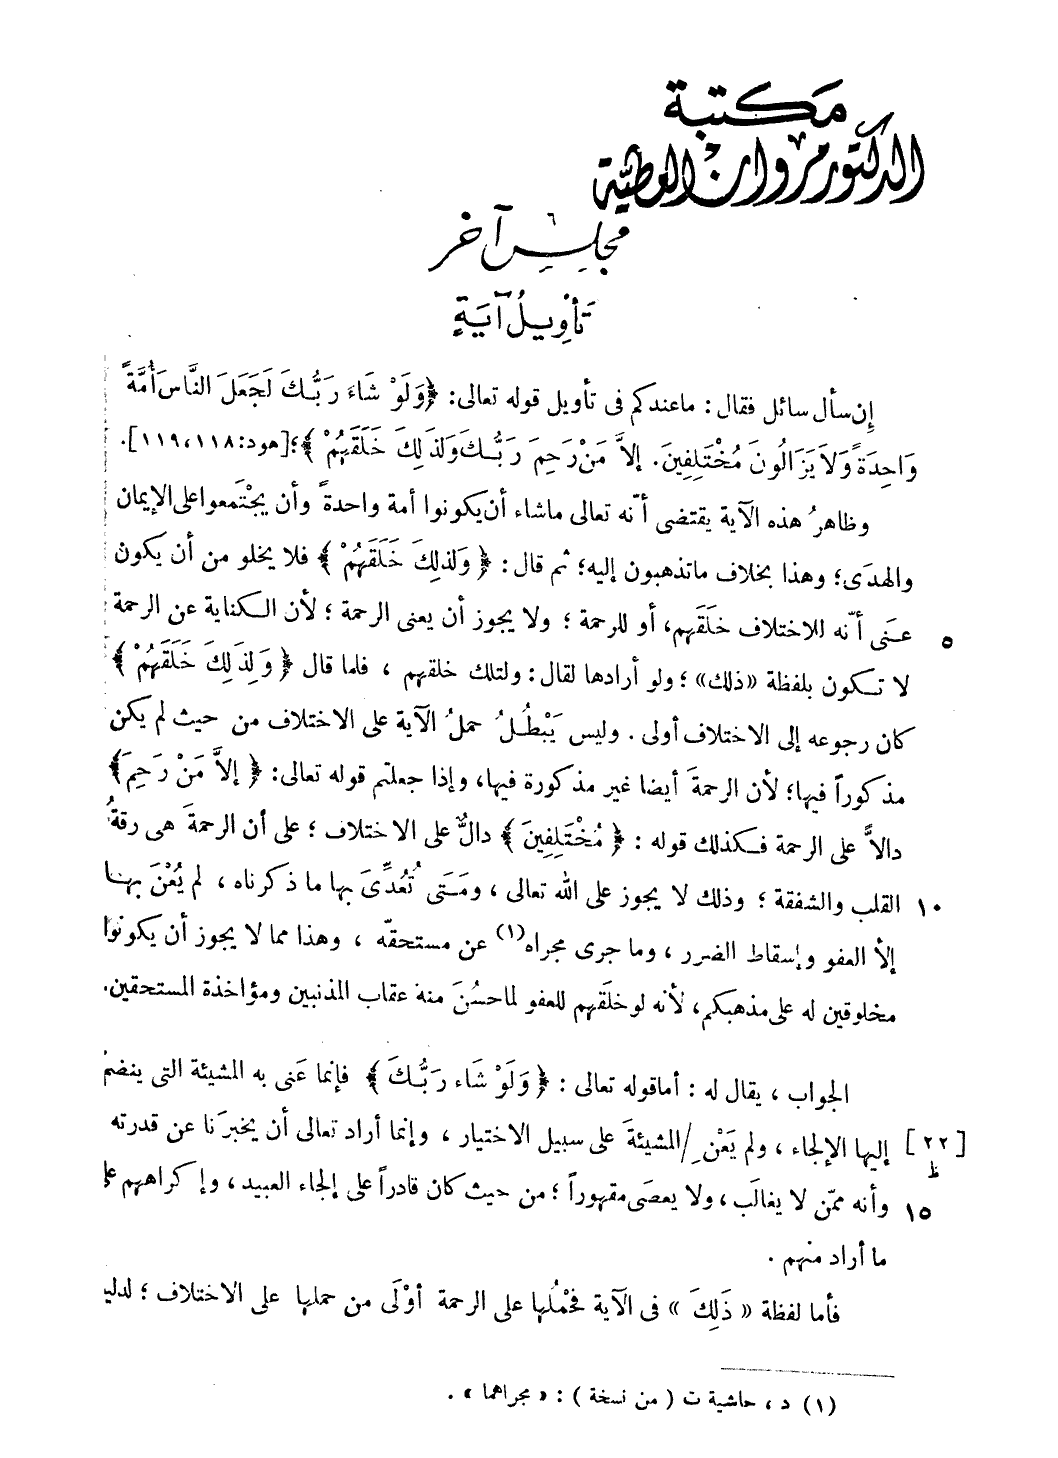 مكتبة
الدكتور مروان العطية
٦
مجلس آخر
تَأْوِيلُ آيَةٍ
إن سأل سائل فقال : ماعندكم فى تأويل قوله تعالى: ﴿وَلَوْ شَاءَ رَبُّكَ لَجَعَلَ النَّاسَ أُمَّةً
وَاحِدَةً وَلاَ يَزَالُونَ مُخْتَلِفِينَ. إلاَّ مَنْ رَحِمَ رَبُّكَ وَلذَلِكَ خَلَقَهُمْ﴾؛ [هود: ١١٨، ١١٩].
وظاهرُ هذه الآية يقتضى أنّه تعالى ماشاء أن يكونوا أمة واحدةً وأن يجْتَمعوا على الإيمان
والهدَى؛ وهذا بخلاف ماتذهبون إليه؛ ثم قال : ﴿وَلذلِكَ خَلَقَهُمْ﴾ فلا يخلو من أن يكون
عنَى أنّه للاختلاف خلَقَهم، أو للرحمة ؛ ولا يجوز أن يعنى الرحمة ؛ لأن الكناية عن الرحمة
٥
لا تكون بلفظة «ذلك» ؛ ولو أرادها لقال : ولتلك خلقهم ، فلما قال ﴿وَلِذَلِكَ خَلَقَهُمْ﴾
كان رجوعه إلى الاختلاف أولى . وليس يَبْطُلُ حملُ الآية على الاختلاف من حيث لم يكن
مذكوراً فيها؛ لأن الرحمةَ أيضا غير مذكورة فيها، وإذا جعلتم قوله تعالى: ﴿إلاَّ مَنْ رَحِمَ﴾
دالاًّ على الرحمة فكذلك قوله : ﴿مُخْتَلِفِينَ﴾ دالٌّ على الاختلاف ؛ على أن الرحمةَ هى رقةُ
١٠ القلب والشفقة ؛ وذلك لا يجوز على الله تعالى ، ومَتَى تُعُدِّىَ بها ما ذكرناه ، لم يُعْنَ بها
إلا العفو وإسقاط الضرر ، وما جرى مجراه(١) عن مستحقّه ، وهذا مما لا يجوز أن يكونوا
مخلوقين له على مذهبكم، لأنه لو خلَقهم للعفو لما حسُنَ منه عقاب المذنبين ومؤاخذة المستحقين.
الجواب ، يقال له : أماقوله تعالى : ﴿وَلَوْ شَاء رَبُّكَ﴾ فإنما عَنى به المشيئة التى ينضمّ
[٢٢ ظ] إليها الإلجاء ، ولم يَعْنِ /المشيئةَ على سبيل الاختيار ، وإنما أراد تعالى أن يخبرَنا عن قدرته
١٥ وأنه ممّن لا يغالَب ، ولا يعصَى مقهوراً ؛ من حيث كان قادراً على إلجاء العبيد ، وإكراههم على
ما أراد منهم .
فأما لفظة « ذَلِكَ » فى الآية فحْمُلها على الرحمة أوْلَى من حملها على الاختلاف ؛ لدليل
(١) د ، حاشية ت ( من نسخة ) : « مجراهما » .